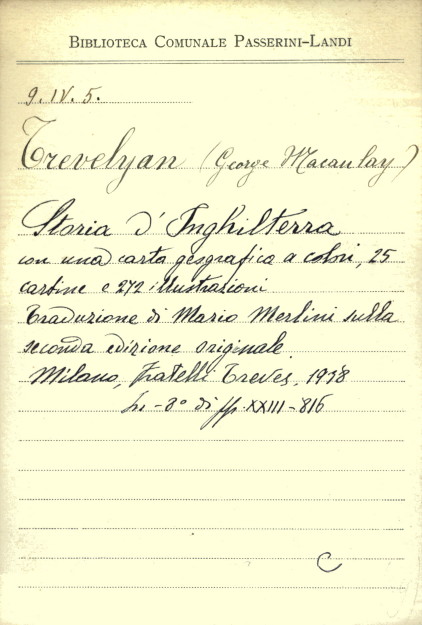 BIBLIOTECA COMUNALE PASSERINI-LANDI
9. IV. 5.
Trevelyan (George Macaulay)
Storia d'Inghilterra
con una carta geografica a colori, 25
cartine e 272 illustrazioni
Traduzione di Mario Merlini sulla
seconda edizione originale.
Milano, Fratelli Treves, 1938
In-8° di pp. XXIII-816
C